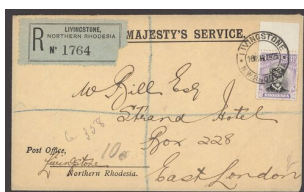 LIVINGSTONE,
NORTHERN RHODESIA
R Nº 1764
MAJESTY'S SERVICE.
LIVINGSTONE
RHODESIA
W Bill Esq
Strand Hotel
Box 228
East London
Post Office,
Livingstone
Northern Rhodesia.